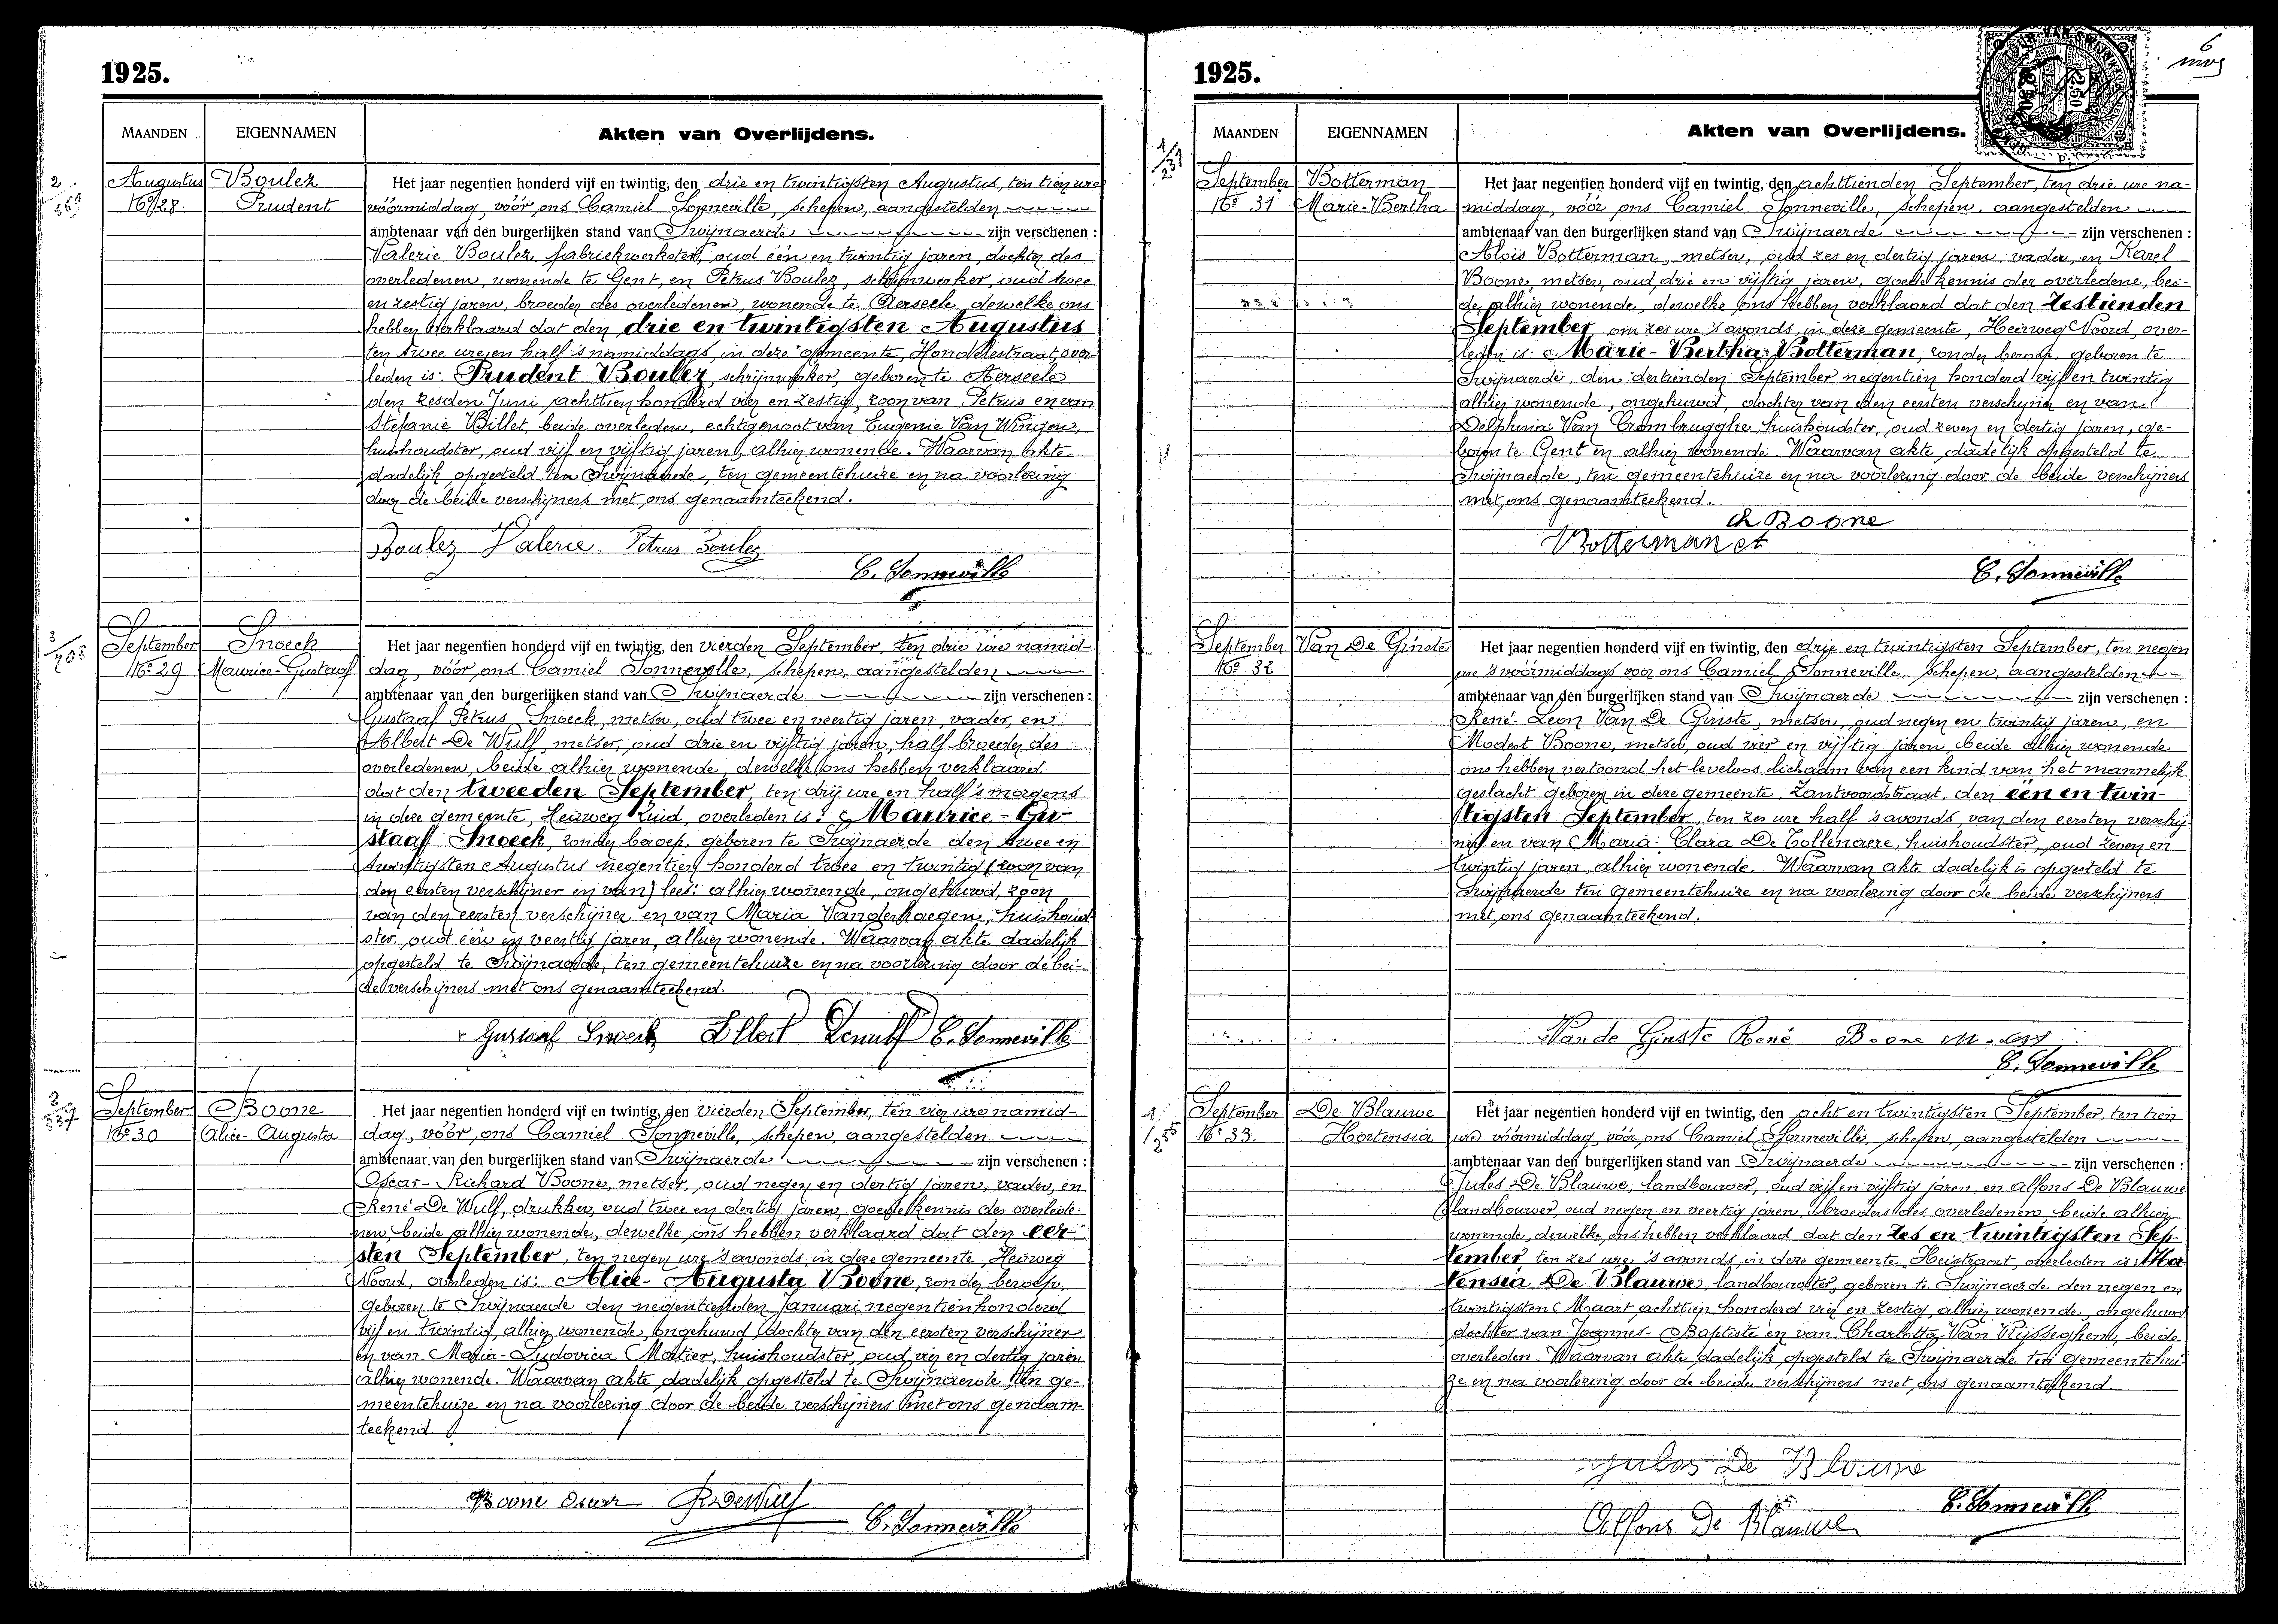 1925.
MAANDEN
EIGENNAMEN
Akten van Overlijdens.
Augustus
No 28.
Boulez
Prudent
Het jaar negentien honderd vijf en twintig, den drie en twintigsten Augustus, ten tien ure
vóórmiddag, vóór ons Camiel Sonneville, schepen, aangestelden
ambtenaar van den burgerlijken stand van Swijnaerde zijn verschenen :
Valerie Boulez, fabriekwerkster, oud één en twintig jaren, dochter des
overledenen, wonende te Gent, en Petrus Boulez, schrijnwerker, oud twee
en zestig jaren, broeder des overledenen, wonende te Aerseele, dewelke ons
hebben verklaard dat den drie en twintigsten Augustus
ten twee ure en half 's namiddags, in deze gemeente, Hondelestraat, over-
leden is: Prudent Boulez, schrijnwerker, geboren te Aerseele
den zesden Juni achttien honderd vier en zestig, zoon van Petrus en van
Stefanie Billet, beide overleden, echtgenoot van Eugenie Van Wingen,
huishoudster, oud vijf en vijftig jaren, alhier wonende. Waarvan akte
dadelijk opgesteld te Swijnaerde, ten gemeentehuize en na voorlezing
door de beide verschijners met ons genaamteekend.
Boulez Valerie Petrus Boulez
C. Sonneville
September
No 29
Snoeck
Maurice-Gustaaf
Het jaar negentien honderd vijf en twintig, den vierden September, ten drie ure namid-
dag, vóór ons Camiel Sonneville, schepen, aangestelden
ambtenaar van den burgerlijken stand van Swijnaerde zijn verschenen :
Gustaaf Petrus Snoeck, metser, oud twee en veertig jaren, vader, en
Albert De Wulf, metser, oud drie en vijftig jaren, half broeder des
overledenen, beide alhier wonende, dewelke ons hebben verklaard
dat den tweeden September ten drij ure en half 's morgens
in deze gemeente, Heirweg Zuid, overleden is: Maurice-Gu-
staaf Snoeck, zonder beroep, geboren te Swijnaerde den twee en
twintigsten Augustus negentien honderd twee en twintig (zoon van
den eersten verschijner en van) lees: alhier wonende, ongehuwd, zoon
van den eersten verschijner en van Maria Vanderhaegen, huishoud-
ster, oud één en veertig jaren, alhier wonende. Waarvan akte dadelijk
opgesteld te Swijnaerde, ten gemeentehuize en na voorlezing door de bei-
de verschijners met ons genaamteekend.
Gustaaf Snoeck Albert Dewulf C. Sonneville
September
No 30
Boone
Alice-Augusta
Het jaar negentien honderd vijf en twintig, den vierden September, ten vier ure namid-
dag, vóór ons Camiel Sonneville, schepen, aangestelden
ambtenaar van den burgerlijken stand van Swijnaerde zijn verschenen :
Oscar-Richard Boone, metser, oud negen en dertig jaren, vader, en
René De Wulf, drukker, oud twee en dertig jaren, goede kennis des overlede-
nen, beide alhier wonende, dewelke ons hebben verklaard dat den eer-
sten September, ten negen ure 's avonds, in deze gemeente, Heirweg
Noord, overleden is: Alice-Augusta Boone, zonder beroep,
geboren te Swijnaerde den negentienden Januari negentien honderd
vijf en twintig, alhier wonende, ongehuwd, dochter van den eersten verschijner
en van Maria-Ludovica Mortier, huishoudster, oud vier en dertig jaren
alhier wonende. Waarvan akte dadelijk opgesteld te Swijnaerde ten ge-
meentehuize en na voorlezing door de beide verschijners met ons genaam-
teekend.
Boone Oscar R. Dewulf
C. Sonneville
1925.
6
MAANDEN
EIGENNAMEN
Akten van Overlijdens.
September
No 31
Botterman
Marie-Bertha
Het jaar negentien honderd vijf en twintig, den achttienden September, ten drie ure na-
middag, vóór ons Camiel Sonneville, schepen, aangestelden
ambtenaar van den burgerlijken stand van Swijnaerde zijn verschenen :
Aloïs Botterman, metser, oud zes en dertig jaren, vader, en Karel
Boone, metser, oud drie en vijftig jaren, goede kennis der overledene, bei-
de alhier wonende, dewelke ons hebben verklaard dat den zestienden
September om zes ure 's avonds, in deze gemeente, Heirweg Noord, over-
leden is: Marie-Bertha Botterman, zonder beroep, geboren te
Swijnaerde, den dertienden September negentien honderd vijf en twintig
alhier wonende, ongehuwd, dochter van den eersten verschijner en van
Delphina Van Crombrugghe, huishoudster, oud zeven en dertig jaren, ge-
boren te Gent en alhier wonende. Waarvan akte dadelijk opgesteld te
Swijnaerde, ten gemeentehuize en na voorlezing door de beide verschijners
met ons genaamteekend.
Ch Boone
Botterman
C. Sonneville
September
No 32
Van De Ginste
Het jaar negentien honderd vijf en twintig, den drie en twintigsten September, ten negen
ure 's vóórmiddags voor ons Camiel Sonneville, schepen, aangestelden
ambtenaar van den burgerlijken stand van Swijnaerde zijn verschenen :
René-Leon Van De Ginste, metser, oud negen en twintig jaren, en
Modest Boone, metser, oud vier en vijftig jaren, beide alhier wonende
ons hebben vertoond het leveloos lichaam van een kind van het mannelijk
geslacht geboren in deze gemeente, Zantvoordstraat, den één en twin-
tigsten September, ten zes ure half 's avonds, van den eersten verschij-
ner en van Maria-Clara De Collenaere, huishoudster, oud zeven en
twintig jaren, alhier wonende. Waarvan akte dadelijk is opgesteld te
Swijnaerde ten gemeentehuize en na voorlezing door de beide verschijners
met ons genaamteekend.
Van de Ginste René Boone Modest
C. Sonneville
September
No 33.
De Blauwe
Hortensia
Het jaar negentien honderd vijf en twintig, den acht en twintigsten September, ten tien
ure vóórmiddag, vóór ons Camiel Sonneville, schepen, aangestelden
ambtenaar van den burgerlijken stand van Swijnaerde zijn verschenen :
Jules De Blauwe, landbouwer, oud vijf en vijftig jaren, en Alfons De Blauwe
landbouwer, oud negen en veertig jaren, broeders des overledenen, beide alhier
wonende, dewelke ons hebben verklaard dat den zes en twintigsten Sep-
tember ten zes ure 's avonds, in deze gemeente, Heistraat, overleden is: Hor-
tensia De Blauwe, landbouwster, geboren te Swijnaerde den negen en
twintigsten Maart achttien honderd vier en zestig, alhier wonende, ongehuwd
dochter van Joannes-Baptiste en van Charlotta Van Vijsseghem, beide
overleden. Waarvan akte dadelijk opgesteld te Swijnaerde ten gemeentehui-
ze en na voorlezing door de beide verschijners met ons genaamteekend.
Jules De Blauwe
Alfons De Blauwe
C. Sonneville